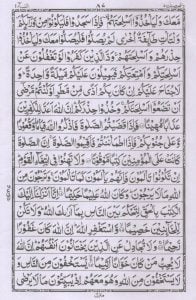 مَّعَكَ وَلْيَاْخُذُوْۤا اَسْلِحَتَهُمْ فَاِذَا سَجَدُوْا فَلْيَكُوْنُوْا مِنْ وَّرَآىِٕكُمْ
وَلْتَاْتِ طَآىِٕفَةٌ اُخْرٰى لَمْ يُصَلُّوْا فَلْيُصَلُّوْا مَعَكَ وَلْيَاْخُذُوْا
حِذْرَهُمْ وَاَسْلِحَتَهُمْ وَدَّ الَّذِيْنَ كَفَرُوْا لَوْ تَغْفُلُوْنَ عَنْ
اَسْلِحَتِكُمْ وَاَمْتِعَتِكُمْ فَيَمِيْلُوْنَ عَلَيْكُمْ مَّيْلَةً وَّاحِدَةً وَ
لَا جُنَاحَ عَلَيْكُمْ اِنْ كَانَ بِكُمْ اَذًى مِّنْ مَّطَرٍ اَوْ كُنْتُمْ مَّرْضٰۤى
اَنْ تَضَعُوْۤا اَسْلِحَتَكُمْ وَخُذُوْا حِذْرَكُمْ اِنَّ اللّٰهَ اَعَدَّ لِلْكٰفِرِيْنَ
عَذَابًا مُّهِيْنًا فَاِذَا قَضَيْتُمُ الصَّلٰوةَ فَاذْكُرُوا اللّٰهَ قِيَامًا وَّقُعُوْدًا
وَّعَلٰى جُنُوْبِكُمْ فَاِذَا اطْمَاْنَنْتُمْ فَاَقِيْمُوا الصَّلٰوةَ اِنَّ الصَّلٰوةَ
كَانَتْ عَلَى الْمُؤْمِنِيْنَ كِتٰبًا مَّوْقُوْتًا وَلَا تَهِنُوْا فِى ابْتِغَآءِ الْقَوْمِ
اِنْ تَكُوْنُوْا تَاْلَمُوْنَ فَاِنَّهُمْ يَاْلَمُوْنَ كَمَا تَاْلَمُوْنَ وَتَرْجُوْنَ مِنَ
اللّٰهِ مَا لَا يَرْجُوْنَ وَكَانَ اللّٰهُ عَلِيْمًا حَكِيْمًا اِنَّاۤ اَنْزَلْنَاۤ اِلَيْكَ
الْكِتٰبَ بِالْحَقِّ لِتَحْكُمَ بَيْنَ النَّاسِ بِمَاۤ اَرٰىكَ اللّٰهُ وَلَا تَكُنْ
لِّلْخَآىِٕنِيْنَ خَصِيْمًا وَّاسْتَغْفِرِ اللّٰهَ اِنَّ اللّٰهَ كَانَ غَفُوْرًا
رَّحِيْمًا وَلَا تُجَادِلْ عَنِ الَّذِيْنَ يَخْتَانُوْنَ اَنْفُسَهُمْ اِنَّ اللّٰهَ
لَا يُحِبُّ مَنْ كَانَ خَوَّانًا اَثِيْمًا يَّسْتَخْفُوْنَ مِنَ النَّاسِ وَ
لَا يَسْتَخْفُوْنَ مِنَ اللّٰهِ وَهُوَ مَعَهُمْ اِذْ يُبَيِّتُوْنَ مَا لَا يَرْضٰى